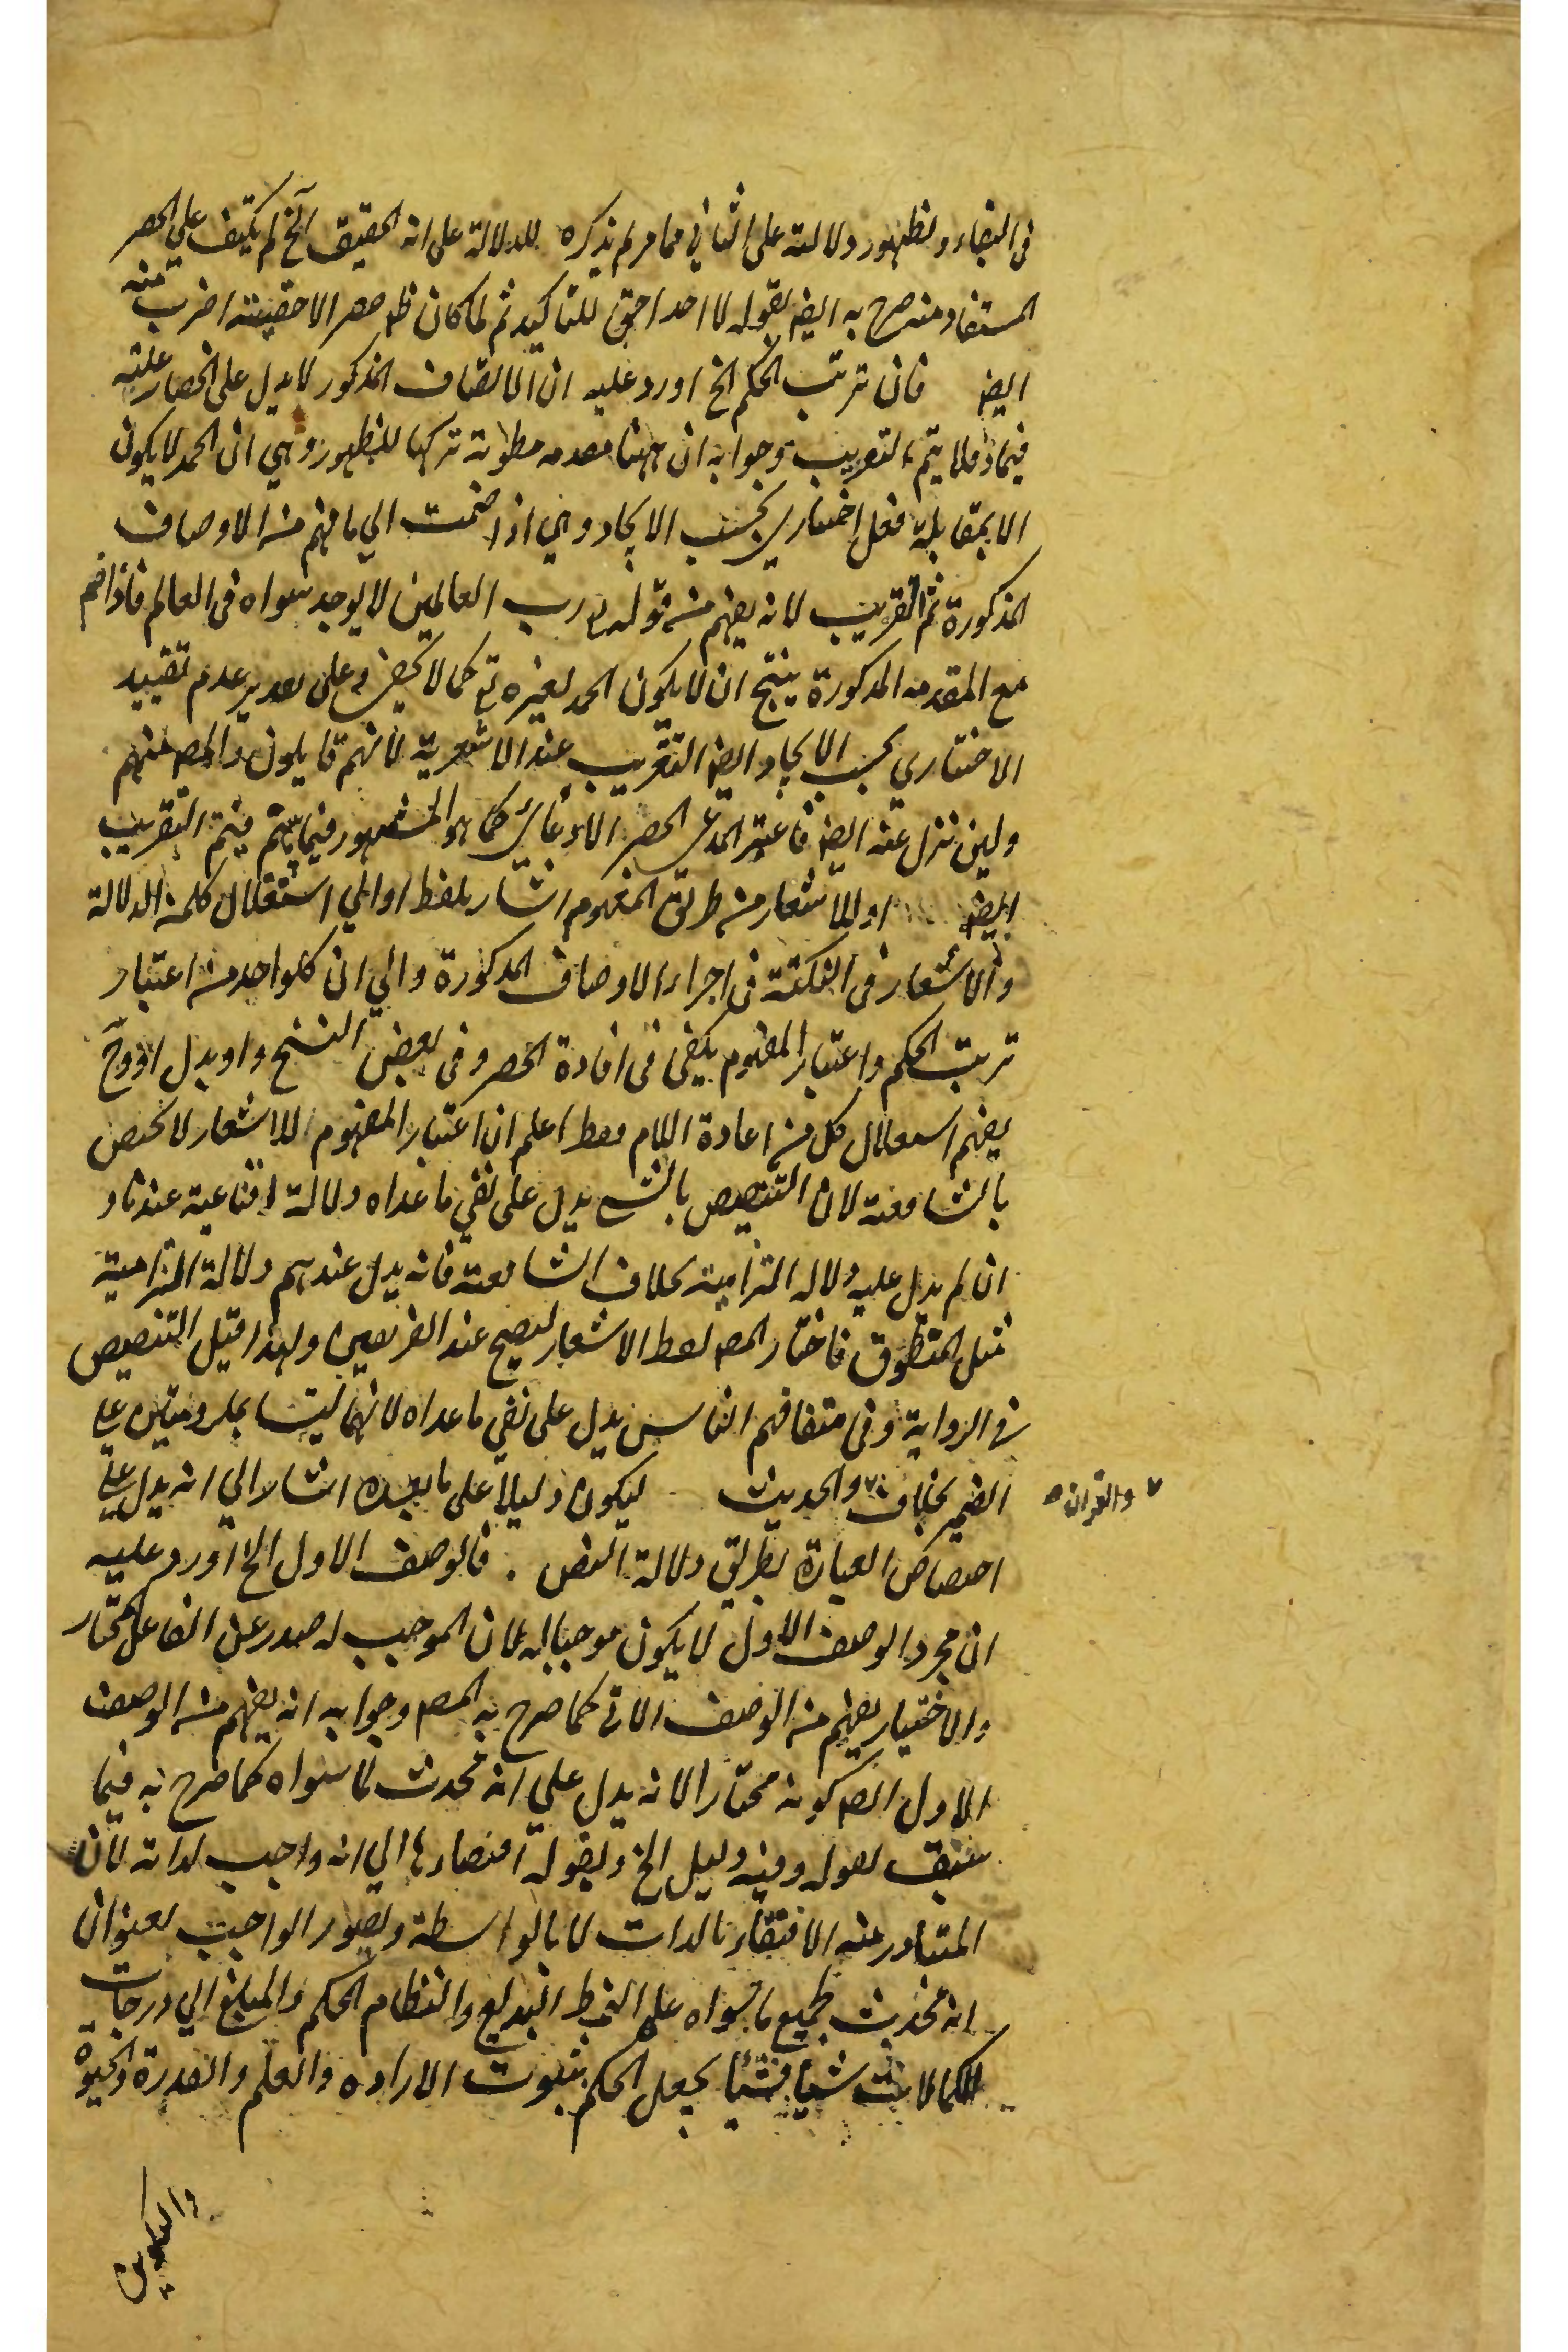 فى البقاء ولظهور دلالته على الثاني مما مر لم يذكره للدلالة على انه الحقيق الخ لم يكتف على الحصر
المستفاد منه صرح به ايض بقوله لا احد احق للتاكيد ثم لما كان ظ حصر الاحقيته اضرب عنه
ايض فان ترتب الحكم الخ اورد عليه ان الاتصاف المذكور لا يدل على انحصار علته
فيما ذكر فلا يتم التقريب وجوابه ان ههنا مقدمه مطوية تركها للظهور وهي ان الحمد لا يكون
الا بمقابلة فعل اختياري بحسب الايجاد وهي اذا ضمت الي ما فهم من الاوصاف
المذكورة تم التقريب لانه يفهم من قوله رب العالمين لا يوجد سواه فى العالم فاذا ضم
مع المقدمه المذكورة ينتج ان لا يكون الحمد لغيره تع كما لا يخفى وعلى تقدير عدم تقييد
الاختياري بحسب الايجاد ايض التقريب عند الاشعرية لانهم قايلون والمص منهم
ولين نزل عنه ايض فاعتبر المدعى الحصر الادعائي كما هو المشهور فيما بينهم فيتم التقريب
ايض او للاشعار من طريق المفهوم اشار بلفظ او الي استقلال كلمن الدلالة
والاشعار فى النكتة فى اجراء الاوصاف المذكورة والي ان كلواحد من اعتبار
ترتب الحكم واعتبار المفهوم يكفى فى افادة الحصر وفى بعض النسخ واو بدل او وح
يفهم استقلال كل من اعادة اللام فقط اعلم ان اعتبار المفهوم للاشعار لا يختص
بالشافعية لان التنصيص بالشئ يدل على نفي ما عداه دلالة اقناعية عندنا و
ان لم يدل عليه دلاله التزامية بخلاف الشافعية فانه يدل عندهم دلالة التزامية
مثل المنطوق فاختار المص لفظ الاشعار ليصح عند الفريقين ولهذا قيل التنصيص
فى الرواية وفى متفاهم الناس يدل على نفي ما عداه لانهما ليسا بمل روبتين علي
الضمير بخلاف والحديث ليكون دليلا على ما بعده اشار الي انه يدل علي
والقران
اختصاص العبادة بطريق دلالة النص . فالوصف الاول الخ اورد عليه
ان مجرد الوصف الاول لا يكون موجبا له لان الموجب له صدر عن الفاعل المختار
والاختيار يفهم من الوصف الاتى كما صرح به المص وجوابه انه يفهم من الوصف
الاول ايض كونه مختارا لانه يدل علي انه محدث لما سواه كما صرح به فيما
سبق بقوله وفيه دليل الخ وبقوله افتقارها الي انه واجب لذاته لان
المتبادر منه الافتقار بالذات لا بالواسطة وتصور الواجب بعنوان
انه محدث لجميع ما سواه على النمط البديع وانتظام الحكم والمبلغ الي درجات
الكمالات شيأ فشيأ يجعل الحكم بثبوت الاراده والعلم والقدرة والحيوة
والتكوين